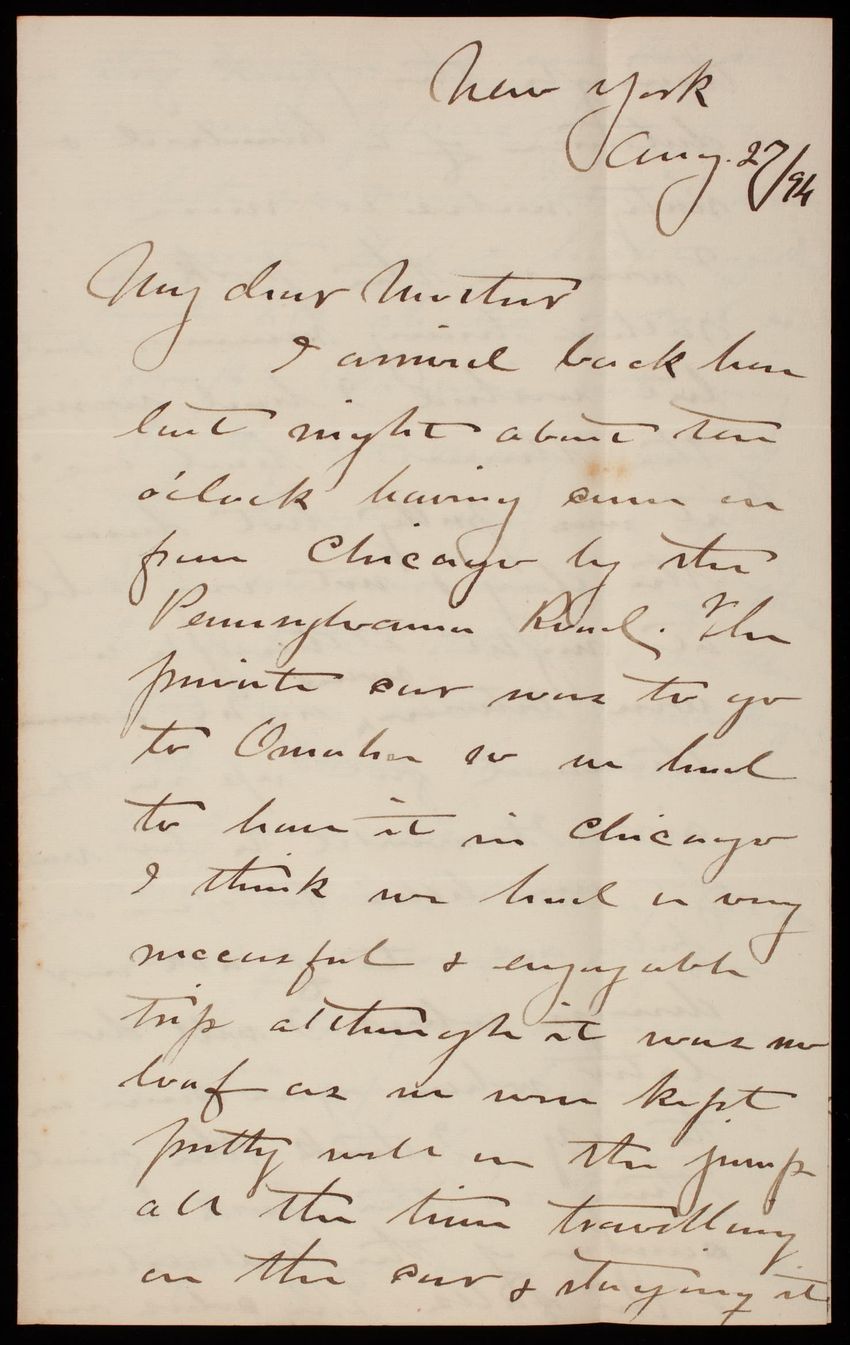 New York
Aug. 27/94
My dear Mother
I arrived back here
last night about ten
o'clock having come on
from Chicago by the
Pennsylvania Road. The
private car was to go
to Omaha so we had
to leave it in Chicago
I think we had a very
successful & enjoyable
trip although it was no
loaf as we were kept
pretty well on the jump
all the time travelling
on the car & staying at